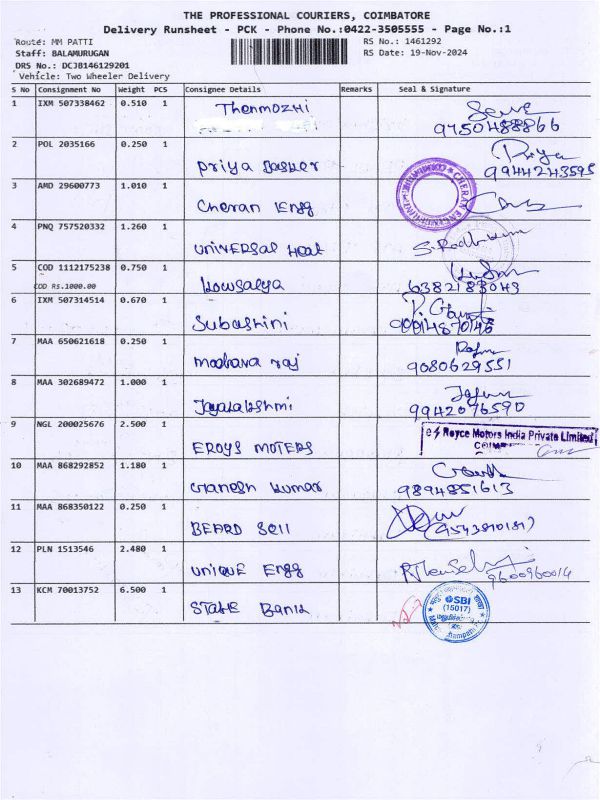 THE PROFESSIONAL COURIERS, COIMBATORE
Delivery Runsheet - PCK - Phone No.:0422-3505555 - Page No.:1
Route: MM PATTI RS No.: 1461292
Staff: BALAMURUGAN RS Date: 19-Nov-2024
DRS No.: DCJB146129201
Vehicle: Two Wheeler Delivery
S No Consignment No Weight PCS Consignee Details Remarks Seal & Signature
1 IXM 507338462 0.510 1 Thenmozhi
9750488866
2 POL 2035166 0.250 1 Priya
9944243595
Priya
3 AMD 29600773 1.010 1
Cheran Engg
4 PNQ 757520332 1.260 1
UNIVERSAL Heat
5 COD 1112175238 0.750 1
COD Rs.1000.00 Kowsalya 6382183049
6 IXM 507314514 0.670 1
Subashini
7 MAA 650621618 0.250 1
madhava raj 9080629551
8 MAA 302689472 1.000 1
Jayalakshmi 9942076590
9 NGL 200025676 2.500 1 Royce Motors India Private Limited
EROYS MOTERS
10 MAA 868292852 1.180 1
Ganesh kumar 9894851613
11 MAA 868350122 0.250 1
BEARD Sell
12 PLN 1513546 2.480 1
UNIQUE Engg 9600960014
13 KCM 70013752 6.500 1 SBI
STATE Bank (15017)